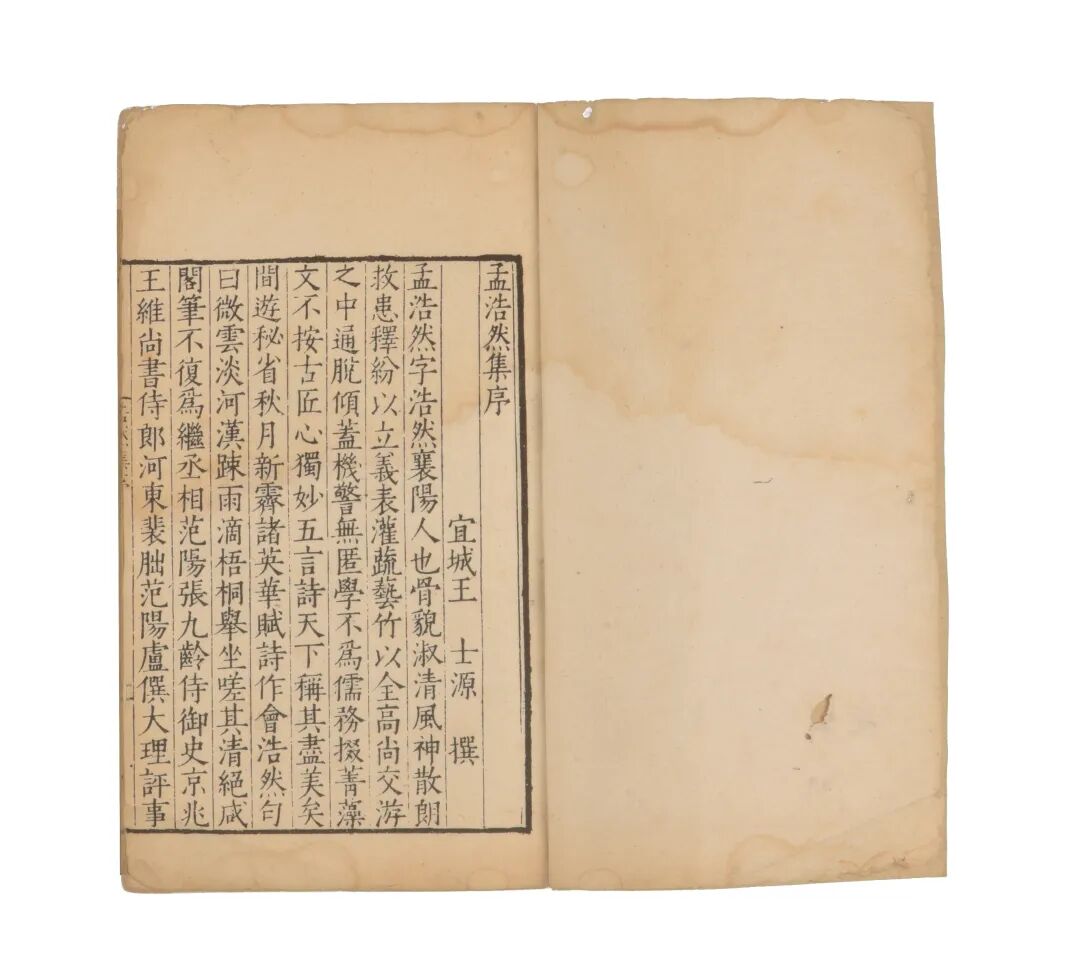 孟浩然集序
宜城王 士源 撰
孟浩然字浩然襄陽人也骨貌淑清風神散朗
救患釋紛以立義表灌蔬藝竹以全高尚交游
之中通脫傾蓋機警無匿學不爲儒務掇菁藻
文不按古匠心獨妙五言詩天下稱其盡美矣
間遊秘省秋月新霽諸英華賦詩作會浩然句
曰微雲淡河漢踈雨滴梧桐舉坐嗟其清絕咸
閣筆不復爲繼丞相范陽張九齡侍御史京兆
王維尚書侍郎河東裴朏范陽盧僎大理評事